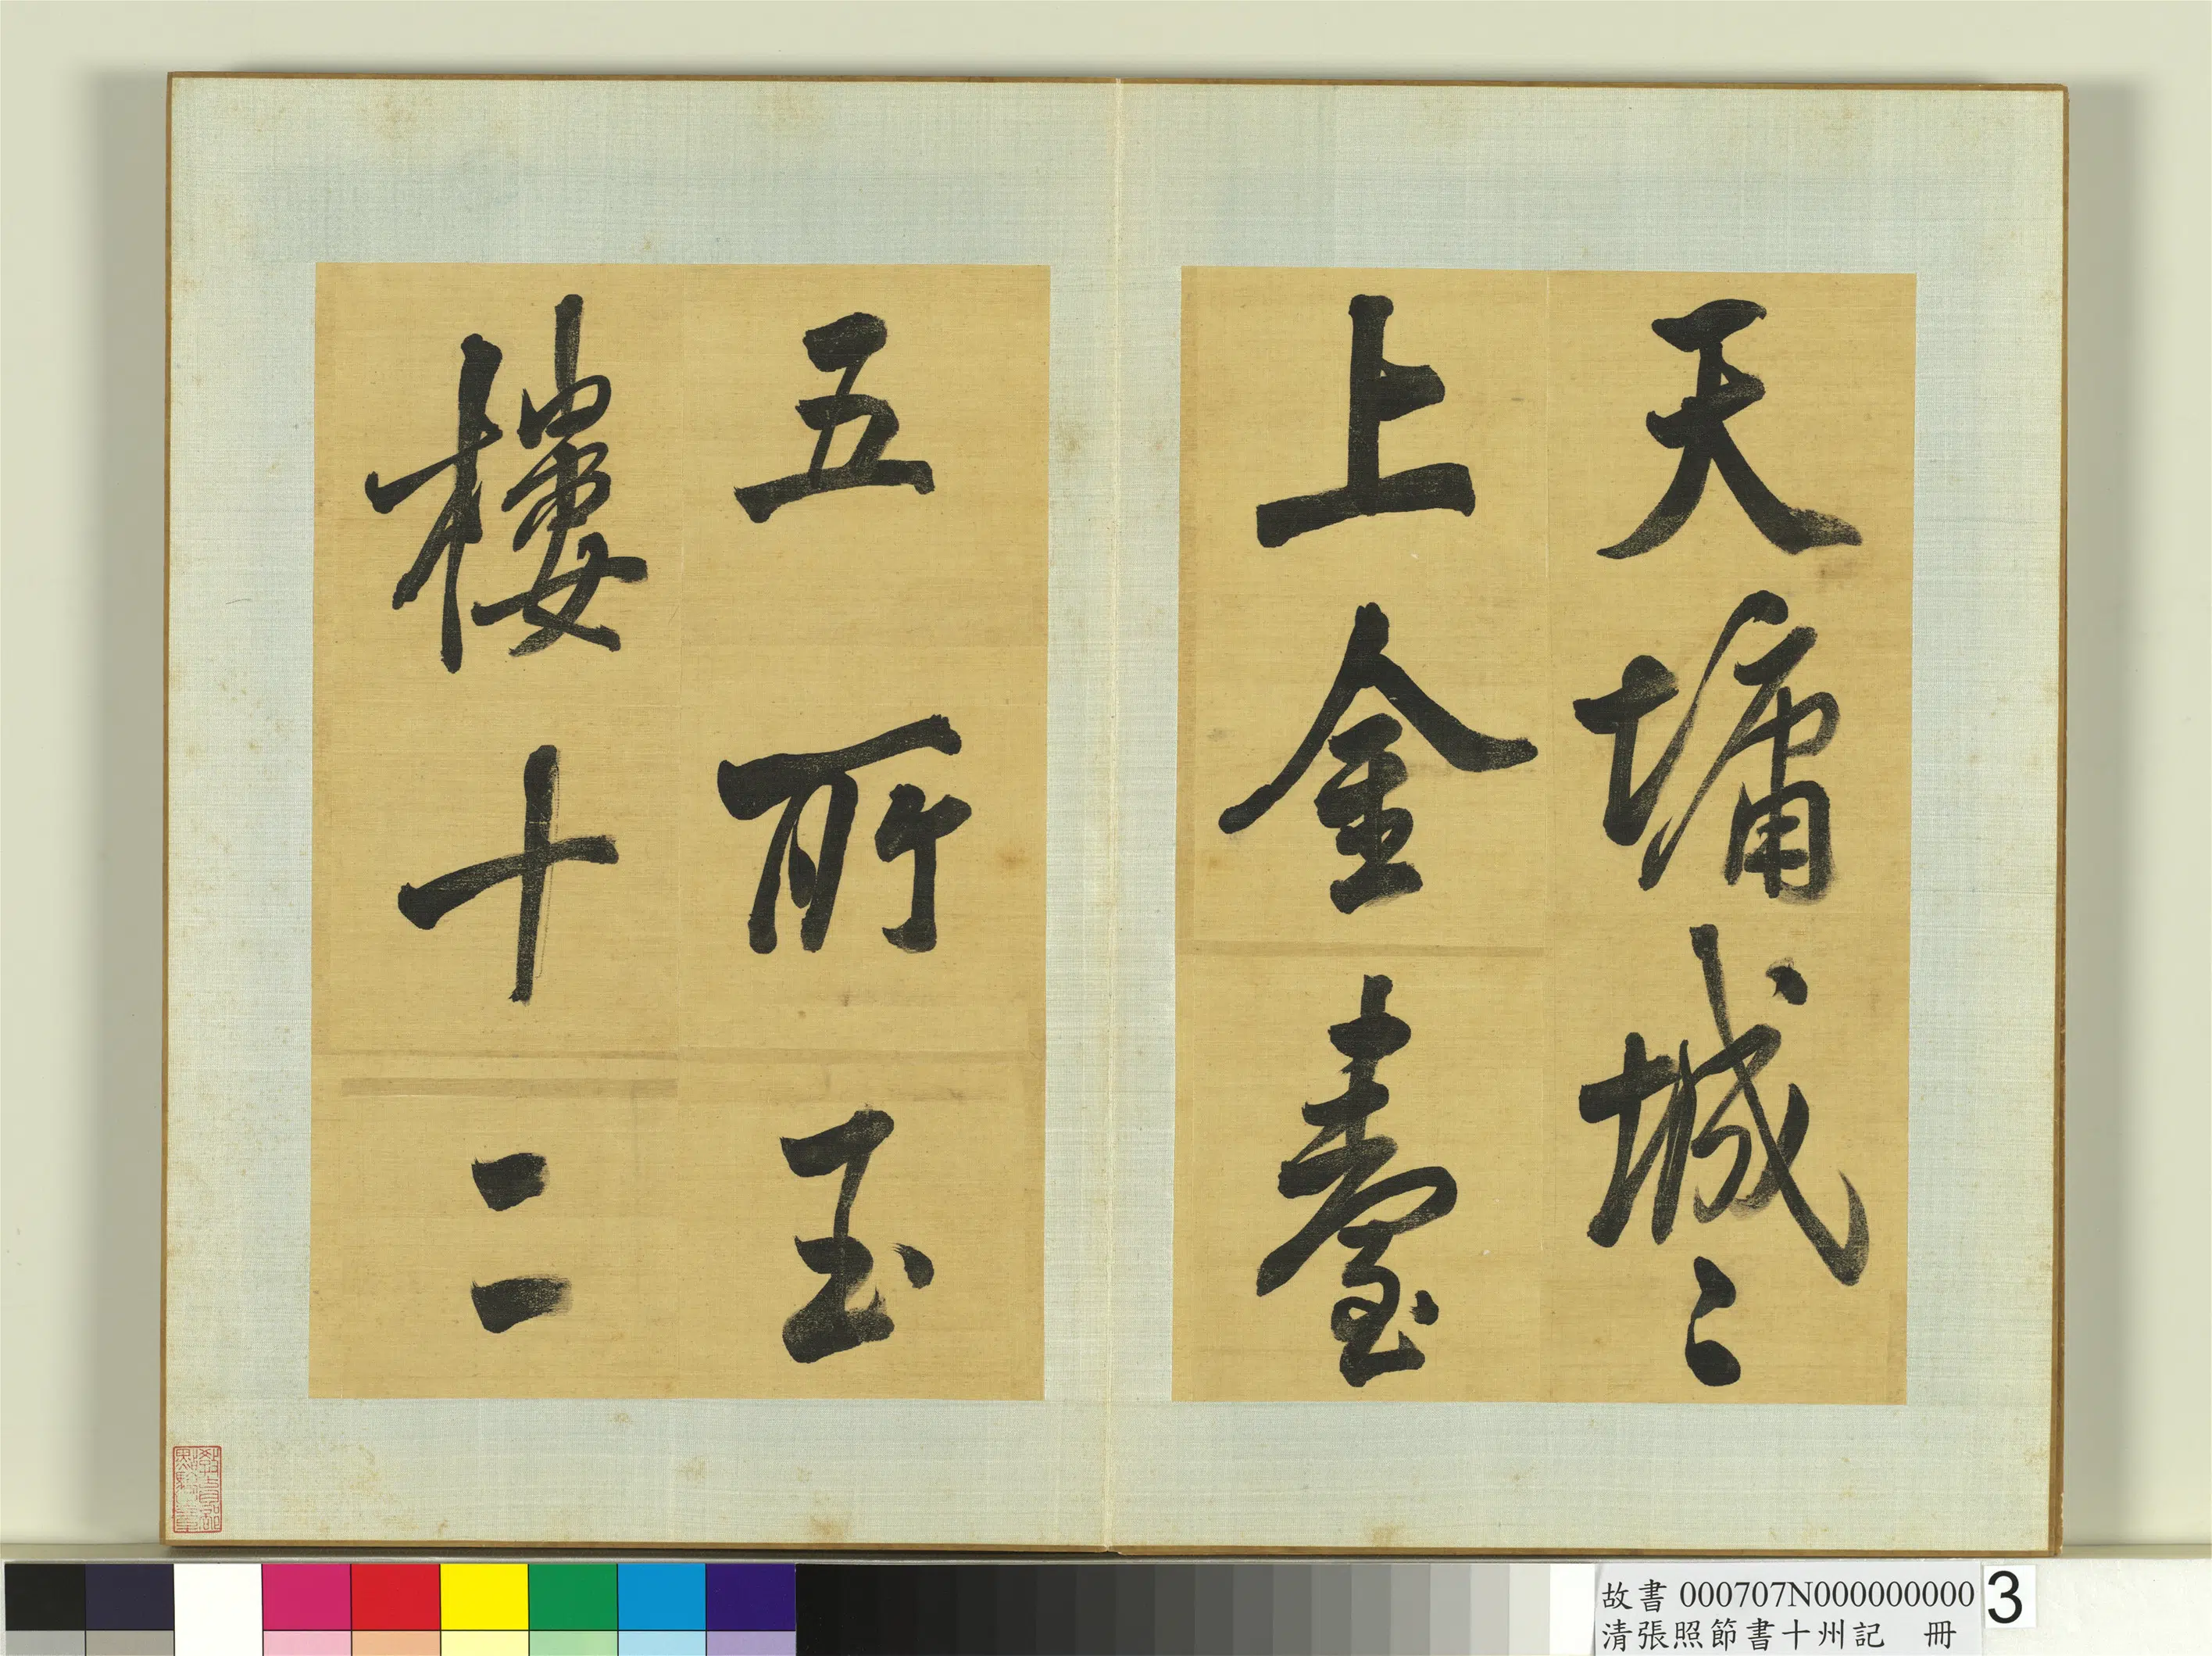 天墉城〻
上金臺
五所玉
樓十二
故書 000707N000000000
清張照節書十州記 冊
3